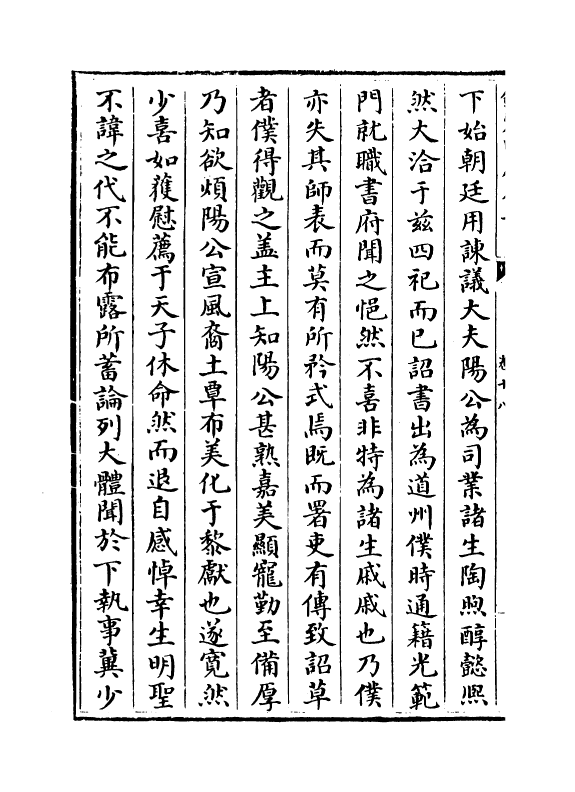 下始朝廷用諫議大夫陽公為司業諸生陶煦醇懿熈
然大洽于兹四祀而已詔書出為道州僕時通籍光範
門就職書府聞之悒然不喜非特為諸生戚戚也乃僕
亦失其師表而莫有所矜式焉既而署吏有傳致詔草
者僕得觀之盖主上知陽公甚熟嘉美顯寵勤至備厚
乃知欲煩陽公宣風裔土覃布美化于黎獻也遂寛然
少喜如獲慰薦于天子休命然而退自感悼幸生明聖
不諱之代不能布露所蓄論列大體聞於下執事冀少
卷十八